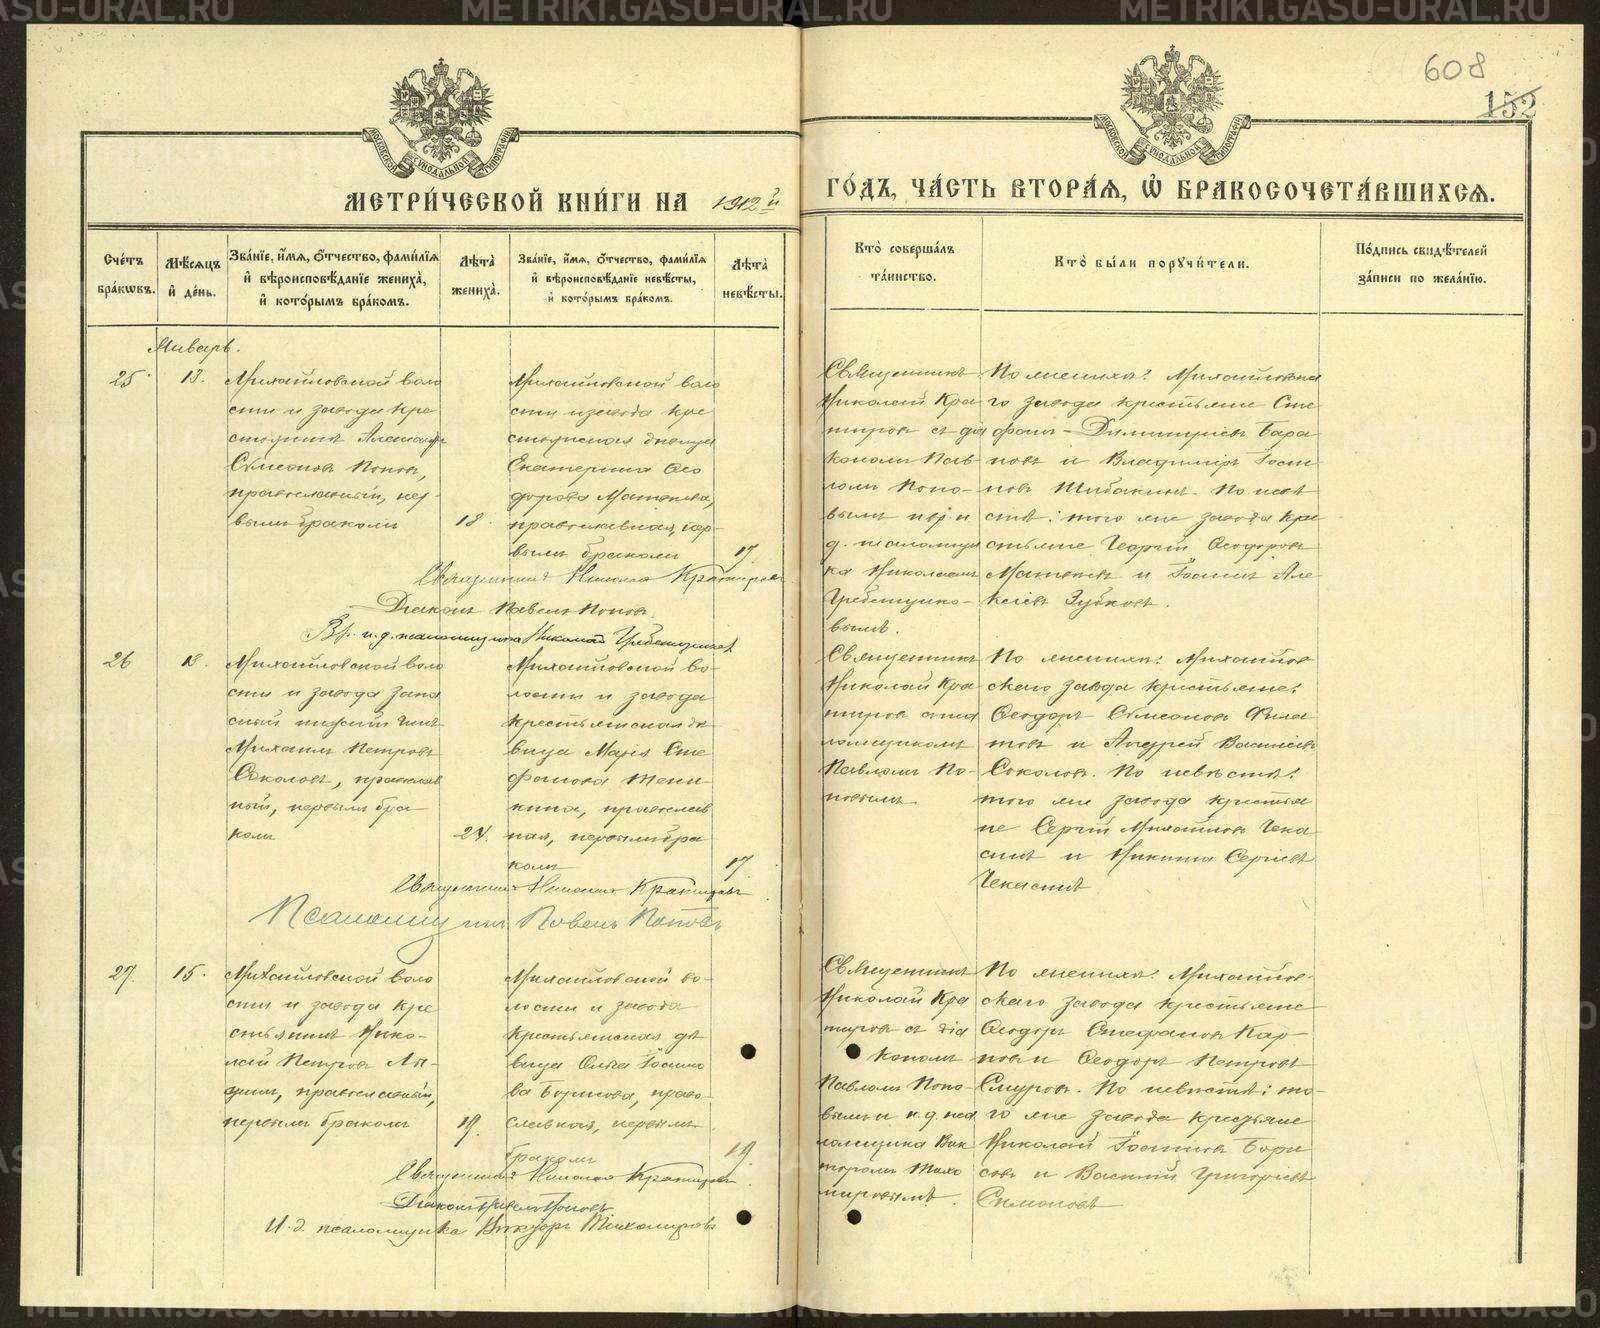 608
152
МОСКОВСКОЙ СѴНОДАЛЬНОЙ ТИПОГРАФІИ
МОСКОВСКОЙ СѴНОДАЛЬНОЙ ТИПОГРАФІИ
МЕТРИ́ЧЕСКОЙ КНИ́ГИ НА 1912й ГО́ДЪ, ЧА́СТЬ ВТОРА́Я, Ѡ БРАКОСОЧЕТА́ВШИХСЯ.
Сче́тъ бра́кѡвъ.
Мѣ́сяцъ и҆ де́нь.
Зва́нїе, и҆́мя, о҆́тчество, фами́лїя и҆ вѣроисповѣ́данїе жениха̀, и҆ кото́рымъ бра́комъ.
Лѣ́та жениха̀.
Зва́нїе, и҆́мя, о҆́тчество, фами́лїя и҆ вѣроисповѣ́данїе невѣ́сты, и҆ кото́рымъ бра́комъ.
Лѣ́та невѣ́сты.
Кто̀ соверша́лъ та́инство.
Кто̀ бы́ли поручи́тели.
По́дпись свидѣ́телей за́писи по жела́нїю.
Январь.
25
13.
Михайловской воло
сти и завода кре
стьянинъ Александръ
Сѵмеоновъ Поповъ,
православный, пер-
вымъ бракомъ
18
Михайловской воло
сти и завода кре
стьянская дѣвица
Екатерина Ѳео
дорова
православная, пер-
вымъ бракомъ
17
Священникъ
Николай Кра
тировъ съ діа
кономъ Пав
ломъ Попо-
вымъ и вр. и
д. псаломщи
ка Николаемъ
Гребенщико-
вымъ.
По женихѣ: Михайловска
го завода крестьяне Сте
фанъ Димитріевъ Бара
новъ и Владиміръ Іоан
новъ Шибакинъ. По невѣ
стѣ: того же завода кре
стьяне Георгій Ѳеодоровъ
и Іоаннъ Але
ксіевъ Зубковъ.
Священникъ Николай Кратировъ
Діаконъ Павелъ Поповъ
Вр. и. д. псаломщика Николай Гребенщиковъ
26
13.
Михайловской воло
сти и завода запа
сный нижній чинъ
Михаилъ Петровъ
Соколовъ, православ
ный, первымъ бра-
комъ
24.
Михайловской во-
лости и завода
крестьянская дѣ
вица Марія Сте
фанова
православ
ная, первымъ бра
комъ
17
Священникъ
Николай Кра
тировъ съ пса
ломщикомъ
Павломъ По-
повымъ
По женихѣ: Михайлов
скаго завода крестьяне:
Ѳеодоръ Сѵмеоновъ Фила
товъ и Андрей Василіевъ
Соколовъ. По невѣстѣ:
того же завода крестья
не Сергій Михайловъ Чека
синъ и Никита Сергіевъ
Чекасинъ
Священникъ Николай Кратировъ
Псаломщикъ Павелъ Поповъ
27.
15.
Михайловской воло
сти и завода кре
стьянинъ Нико-
лай Петровъ
православный,
первымъ бракомъ
19.
Михайловской во-
лости и завода
крестьянская дѣ
вица Ольга Іоанно
ва Борисова, право-
славная, первымъ
бракомъ
19.
Священникъ
Николай Кра
тировъ съ діа
кономъ
Павломъ Попо-
вымъ и и. д. пса
ломщика Вик
торомъ Тихо
мировымъ.
По женихѣ: Михайлов-
скаго завода крестьяне
Ѳеодоръ Стефановъ Кар
повъ и Ѳеодоръ Петровъ
Смуровъ. По невѣстѣ: то-
го же завода крестьяне
Николай Іоанновъ Бори
совъ и Василій Григоріевъ
Симоновъ
Священникъ Николай Кратировъ
Діаконъ Павелъ Поповъ
И. д. псаломщика Викторъ Тихомировъ
METRIKI.GASO-URAL.RU